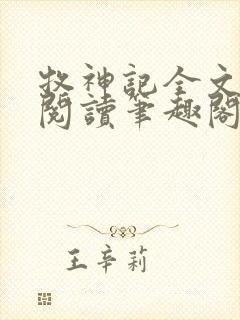 牧神記全文
閱讀筆趣閣
王辛莉